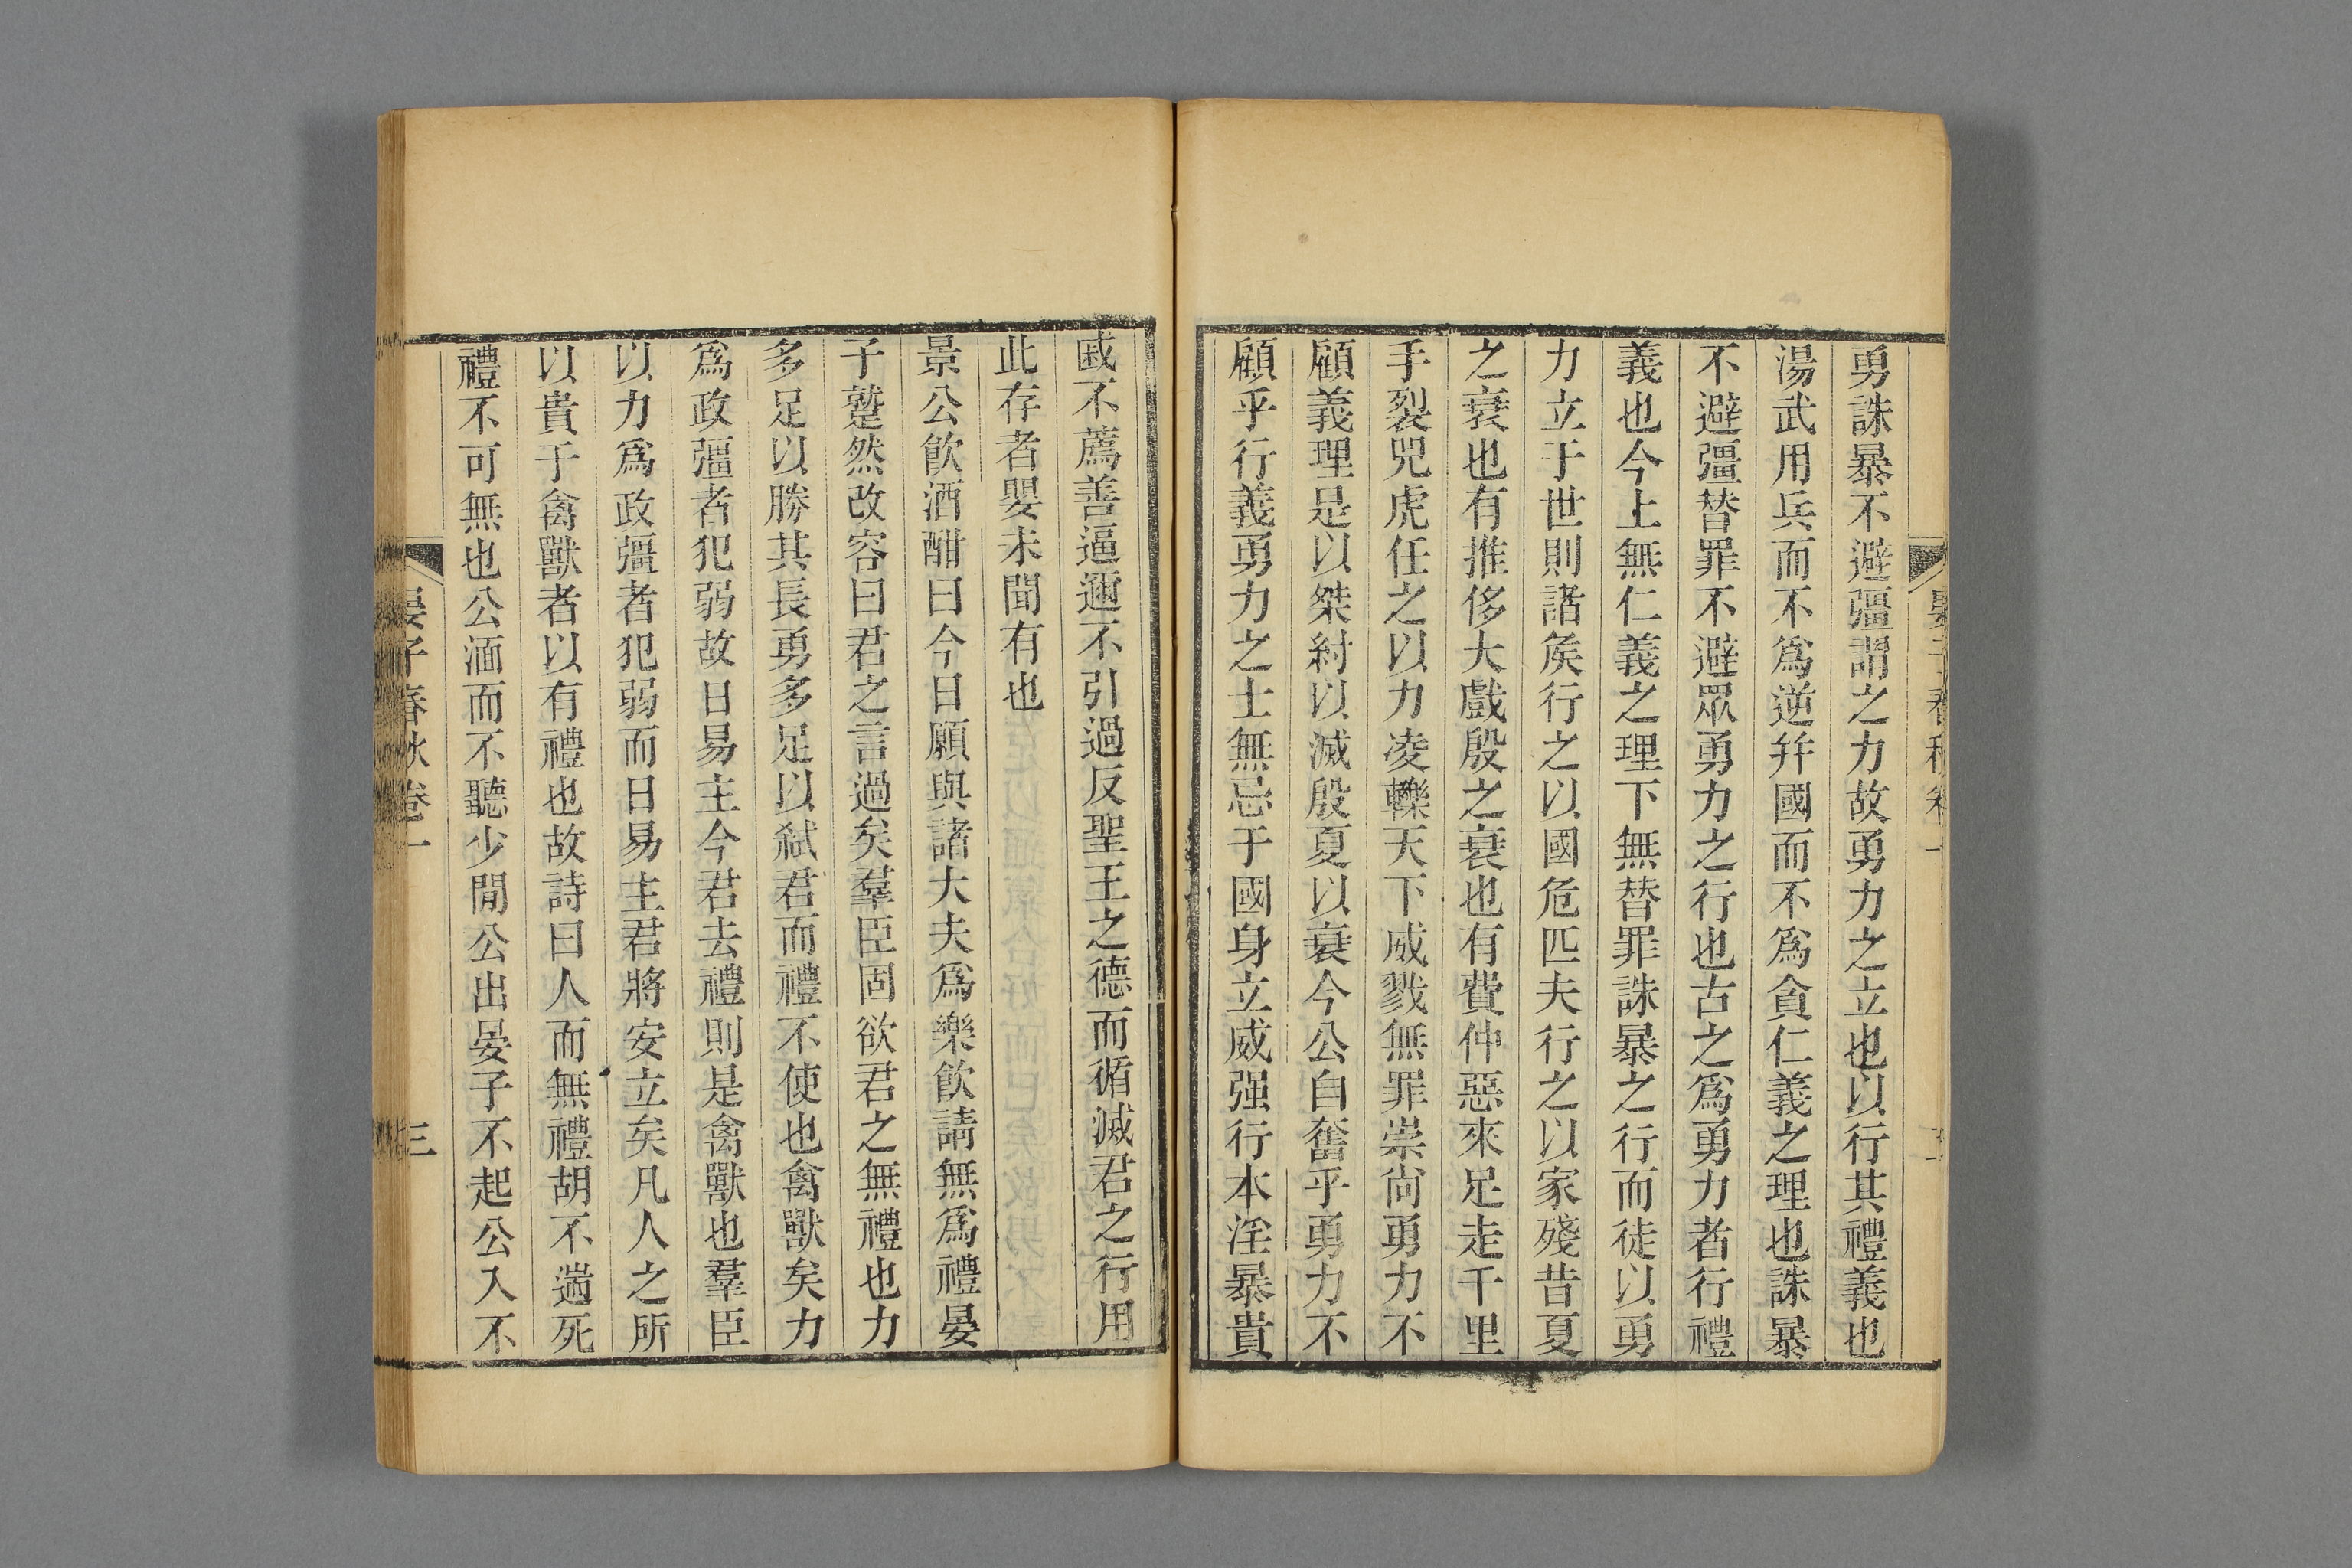 勇誅暴不避彊謂之力故勇力之立也以行其禮義也
湯武用兵而不爲逆幷國而不爲貪仁義之理也誅暴
不避彊替罪不避眾勇力之行也古之爲勇力者行禮
義也今上無仁義之理下無替罪誅暴之行而徒以勇
力立于世則諸矦行之以國危匹夫行之以家殘昔夏
之衰也有推侈大戲殷之衰也有費仲惡來足走千里
手裂兕虎任之以力凌轢天下威戮無罪崇尙勇力不
顧義理是以桀紂以滅殷夏以衰今公自奮乎勇力不
顧乎行義勇力之士無忌于國身立威强行本淫暴貴
戚不薦善逼邇不引過反聖王之德而循滅君之行用
此存者嬰未聞有也
景公飮酒酣曰今日願與諸大夫爲樂飮請無爲禮晏
子蹵然改容曰君之言過矣羣臣固欲君之無禮也力
多足以勝其長勇多足以弑君而禮不使也禽獸矣力
爲政彊者犯弱故日易主今君去禮則是禽獸也羣臣
以力爲政彊者犯弱而日易主君將安立矣凡人之所
以貴于禽獸者以有禮也故詩曰人而無禮胡不遄死
禮不可無也公湎而不聽少閒公出晏子不起公入不
晏子春秋卷一
三